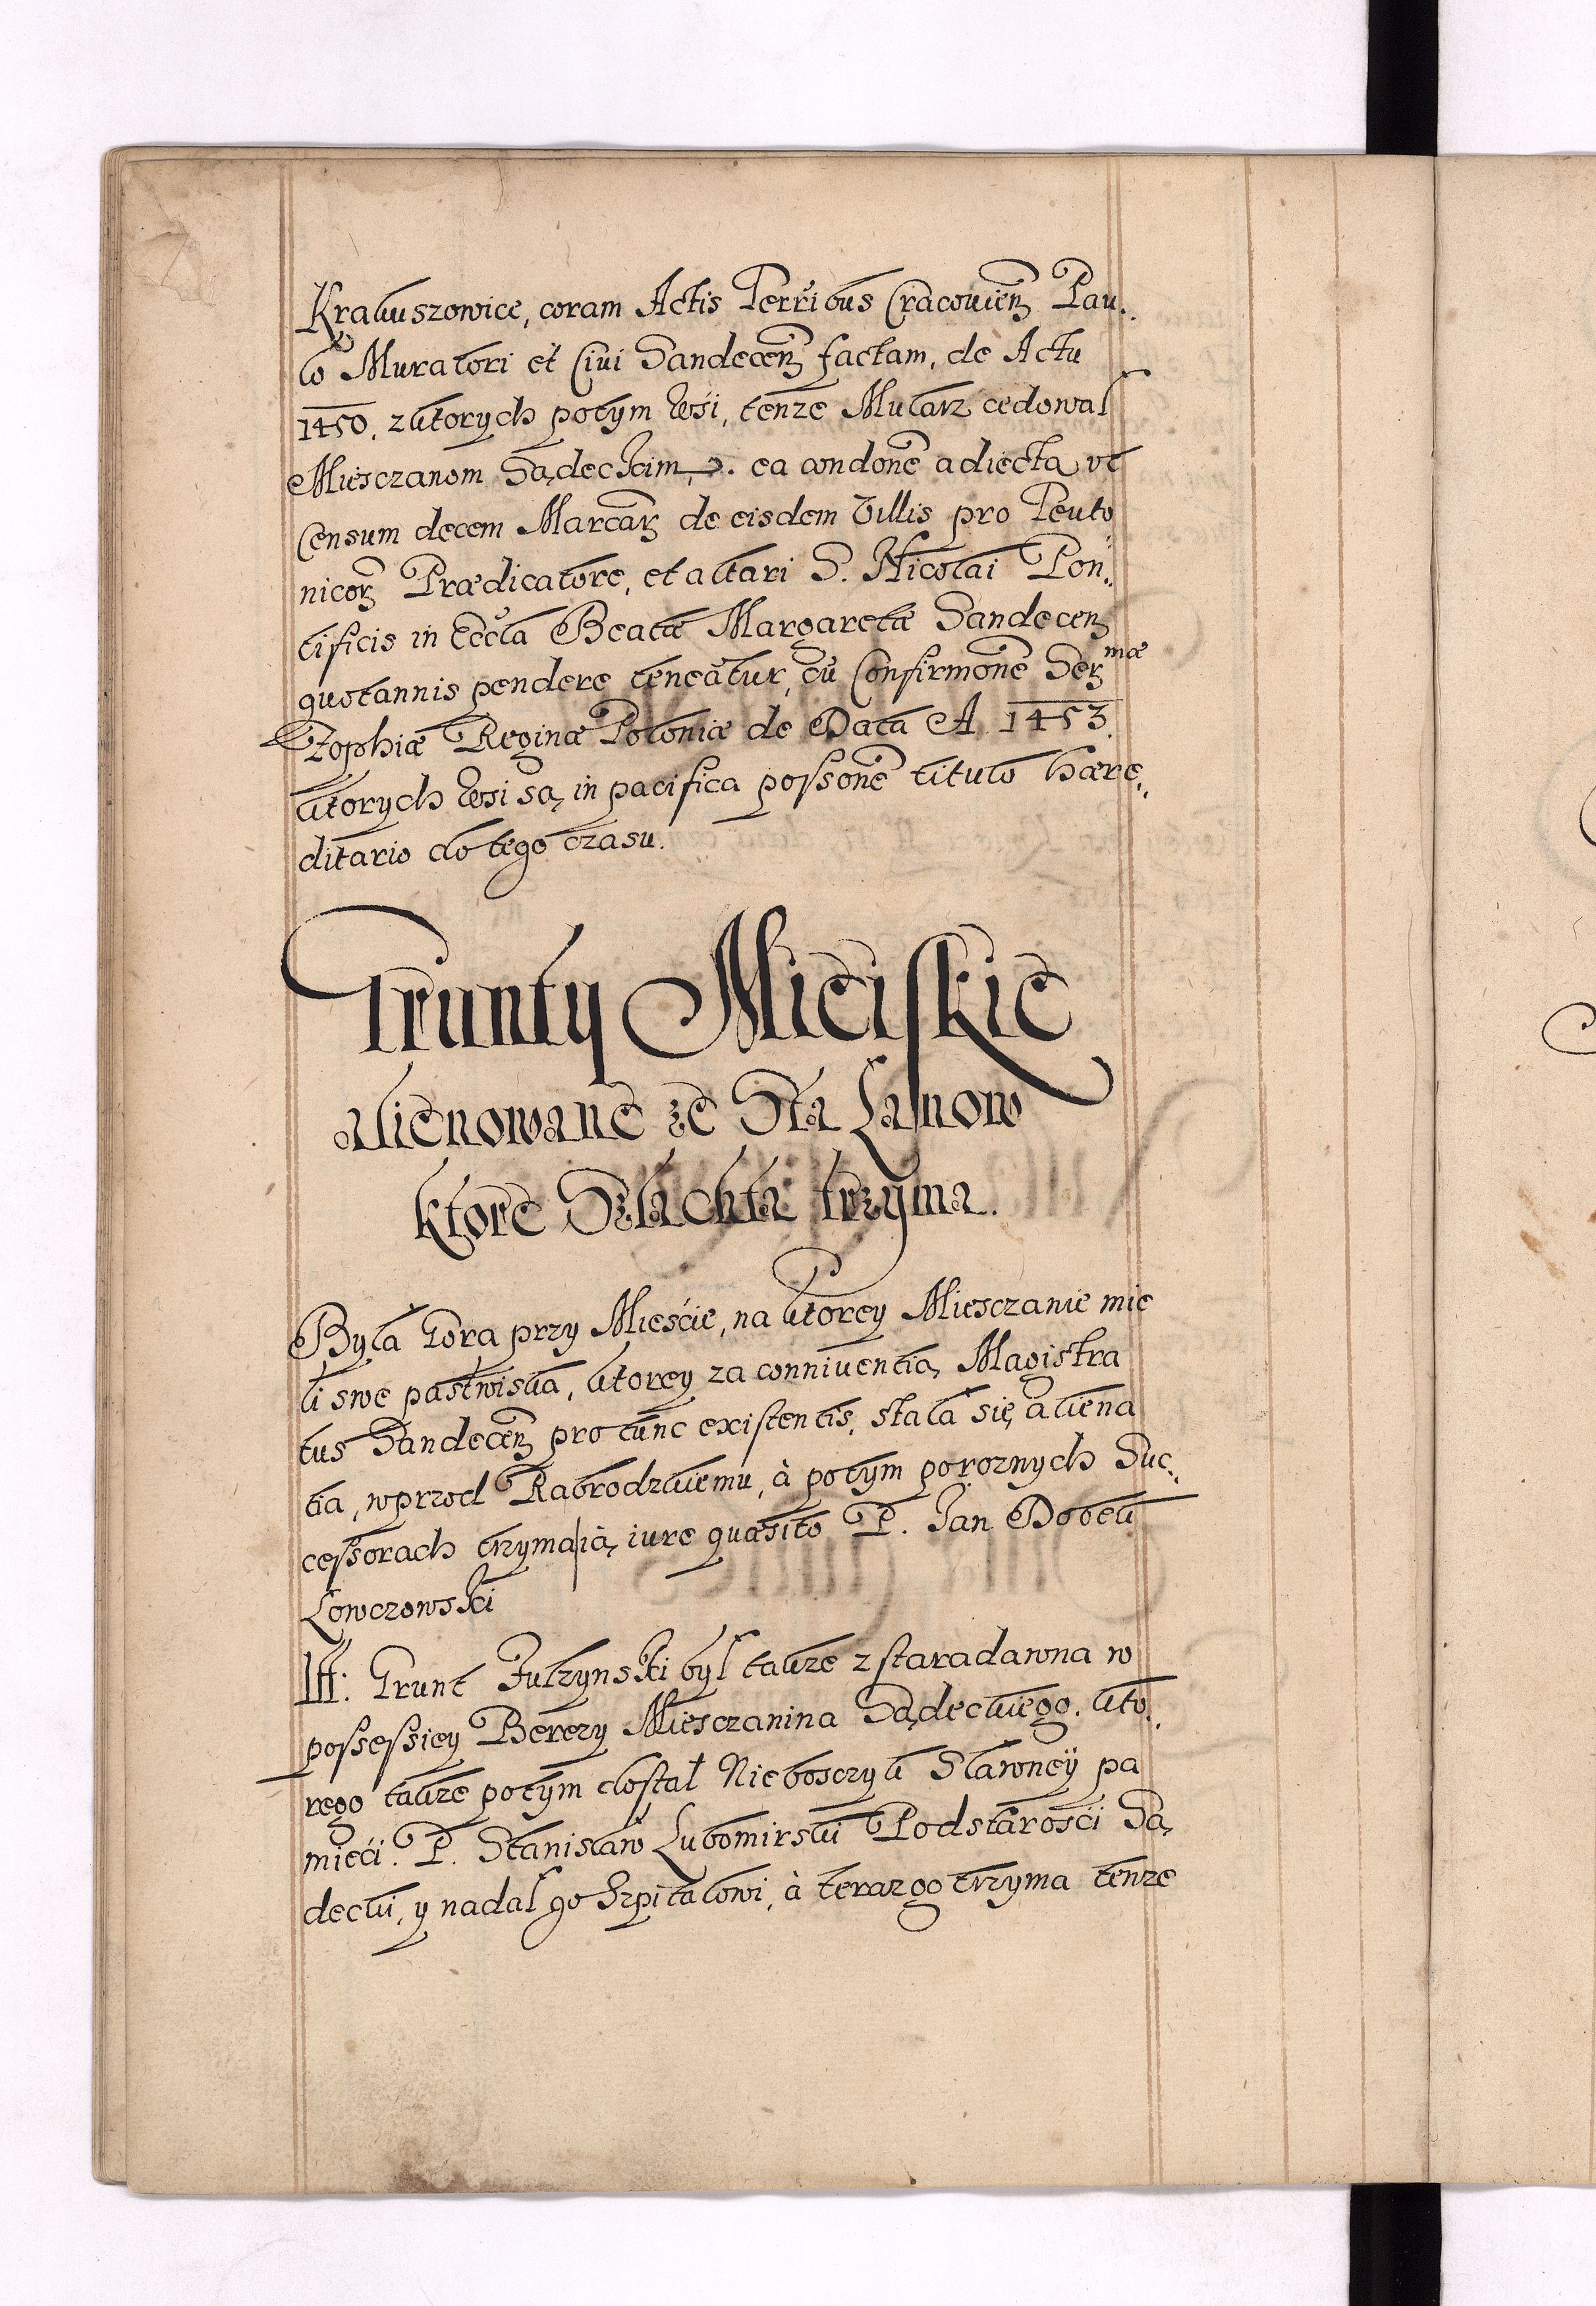 Krakuszowice, coram Actis Terribus Cracouien Pau:
lo Muratori et Ciui Sandecen factam, de Actu
1450. z ktorych potym wsi, tenze Mularz cedował
Miesczanom Sądeckim, ea condone adiecta vt
Censum decem Marcar de eisdem Villis pro Teuto
nicor Prædicatore, et altari S. Nicolai Pon:
tificis in Eccla Beatæ Margaretæ Sandecen
quotannis pendere teneatur, cu Confirmone Ser mæ
Zophiæ Reginæ Poloniæ de Data A 1453.
ktorych wsi są in pacifica possone titulo hære:
ditario do tego czasu.
Grunty Mieiskie
alienowane ze Sta Łanow
ktore Szlachta trzyma.
Była Gora przy Mieście, na ktorey Miesczanie mie
li swe pastwiska, ktorey za conniuentią Magistra
tus Sandecen pro tunc existentis, stała się aliena
tia, wprzod Kabrodzkiemu, à potym po roznych Suc:
cessorach trzyma ią iure quæsito P. Jan Dobek
Łowczowski
Itt: Grunt Fulzynski był takze z staradawna w
possessiey Berezy Miesczanina Sądeckiego. kto:
rego takze potym dostał Nieboszczyk Sławney pa
mieci. P. Stanisław Lubomirski Podstarości Są
decki, y nadał go Szpitalowi, à teraz go trzyma tenze